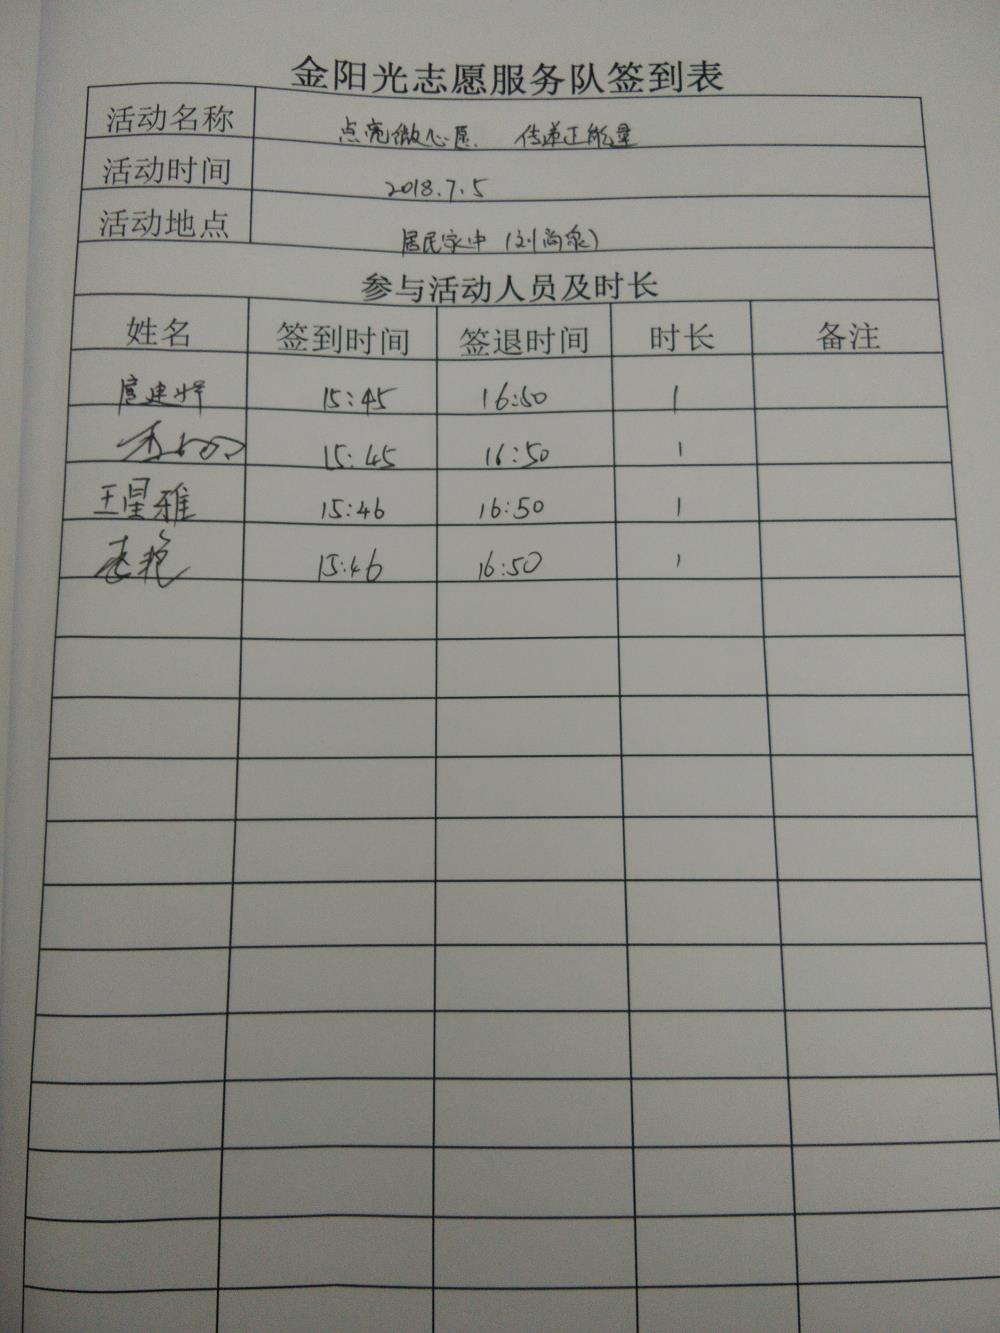 金阳光志愿服务队签到表
活动名称 点亮微心愿 传递正能量
活动时间 2018.7.5
活动地点 居民家中（刘尚泉）
参与活动人员及时长
姓名 签到时间 签退时间 时长 备注
扈建辉 15:45 16:50 1
15:45 16:50 1
王星雅 15:46 16:50 1
李艳 15:46 16:50 1